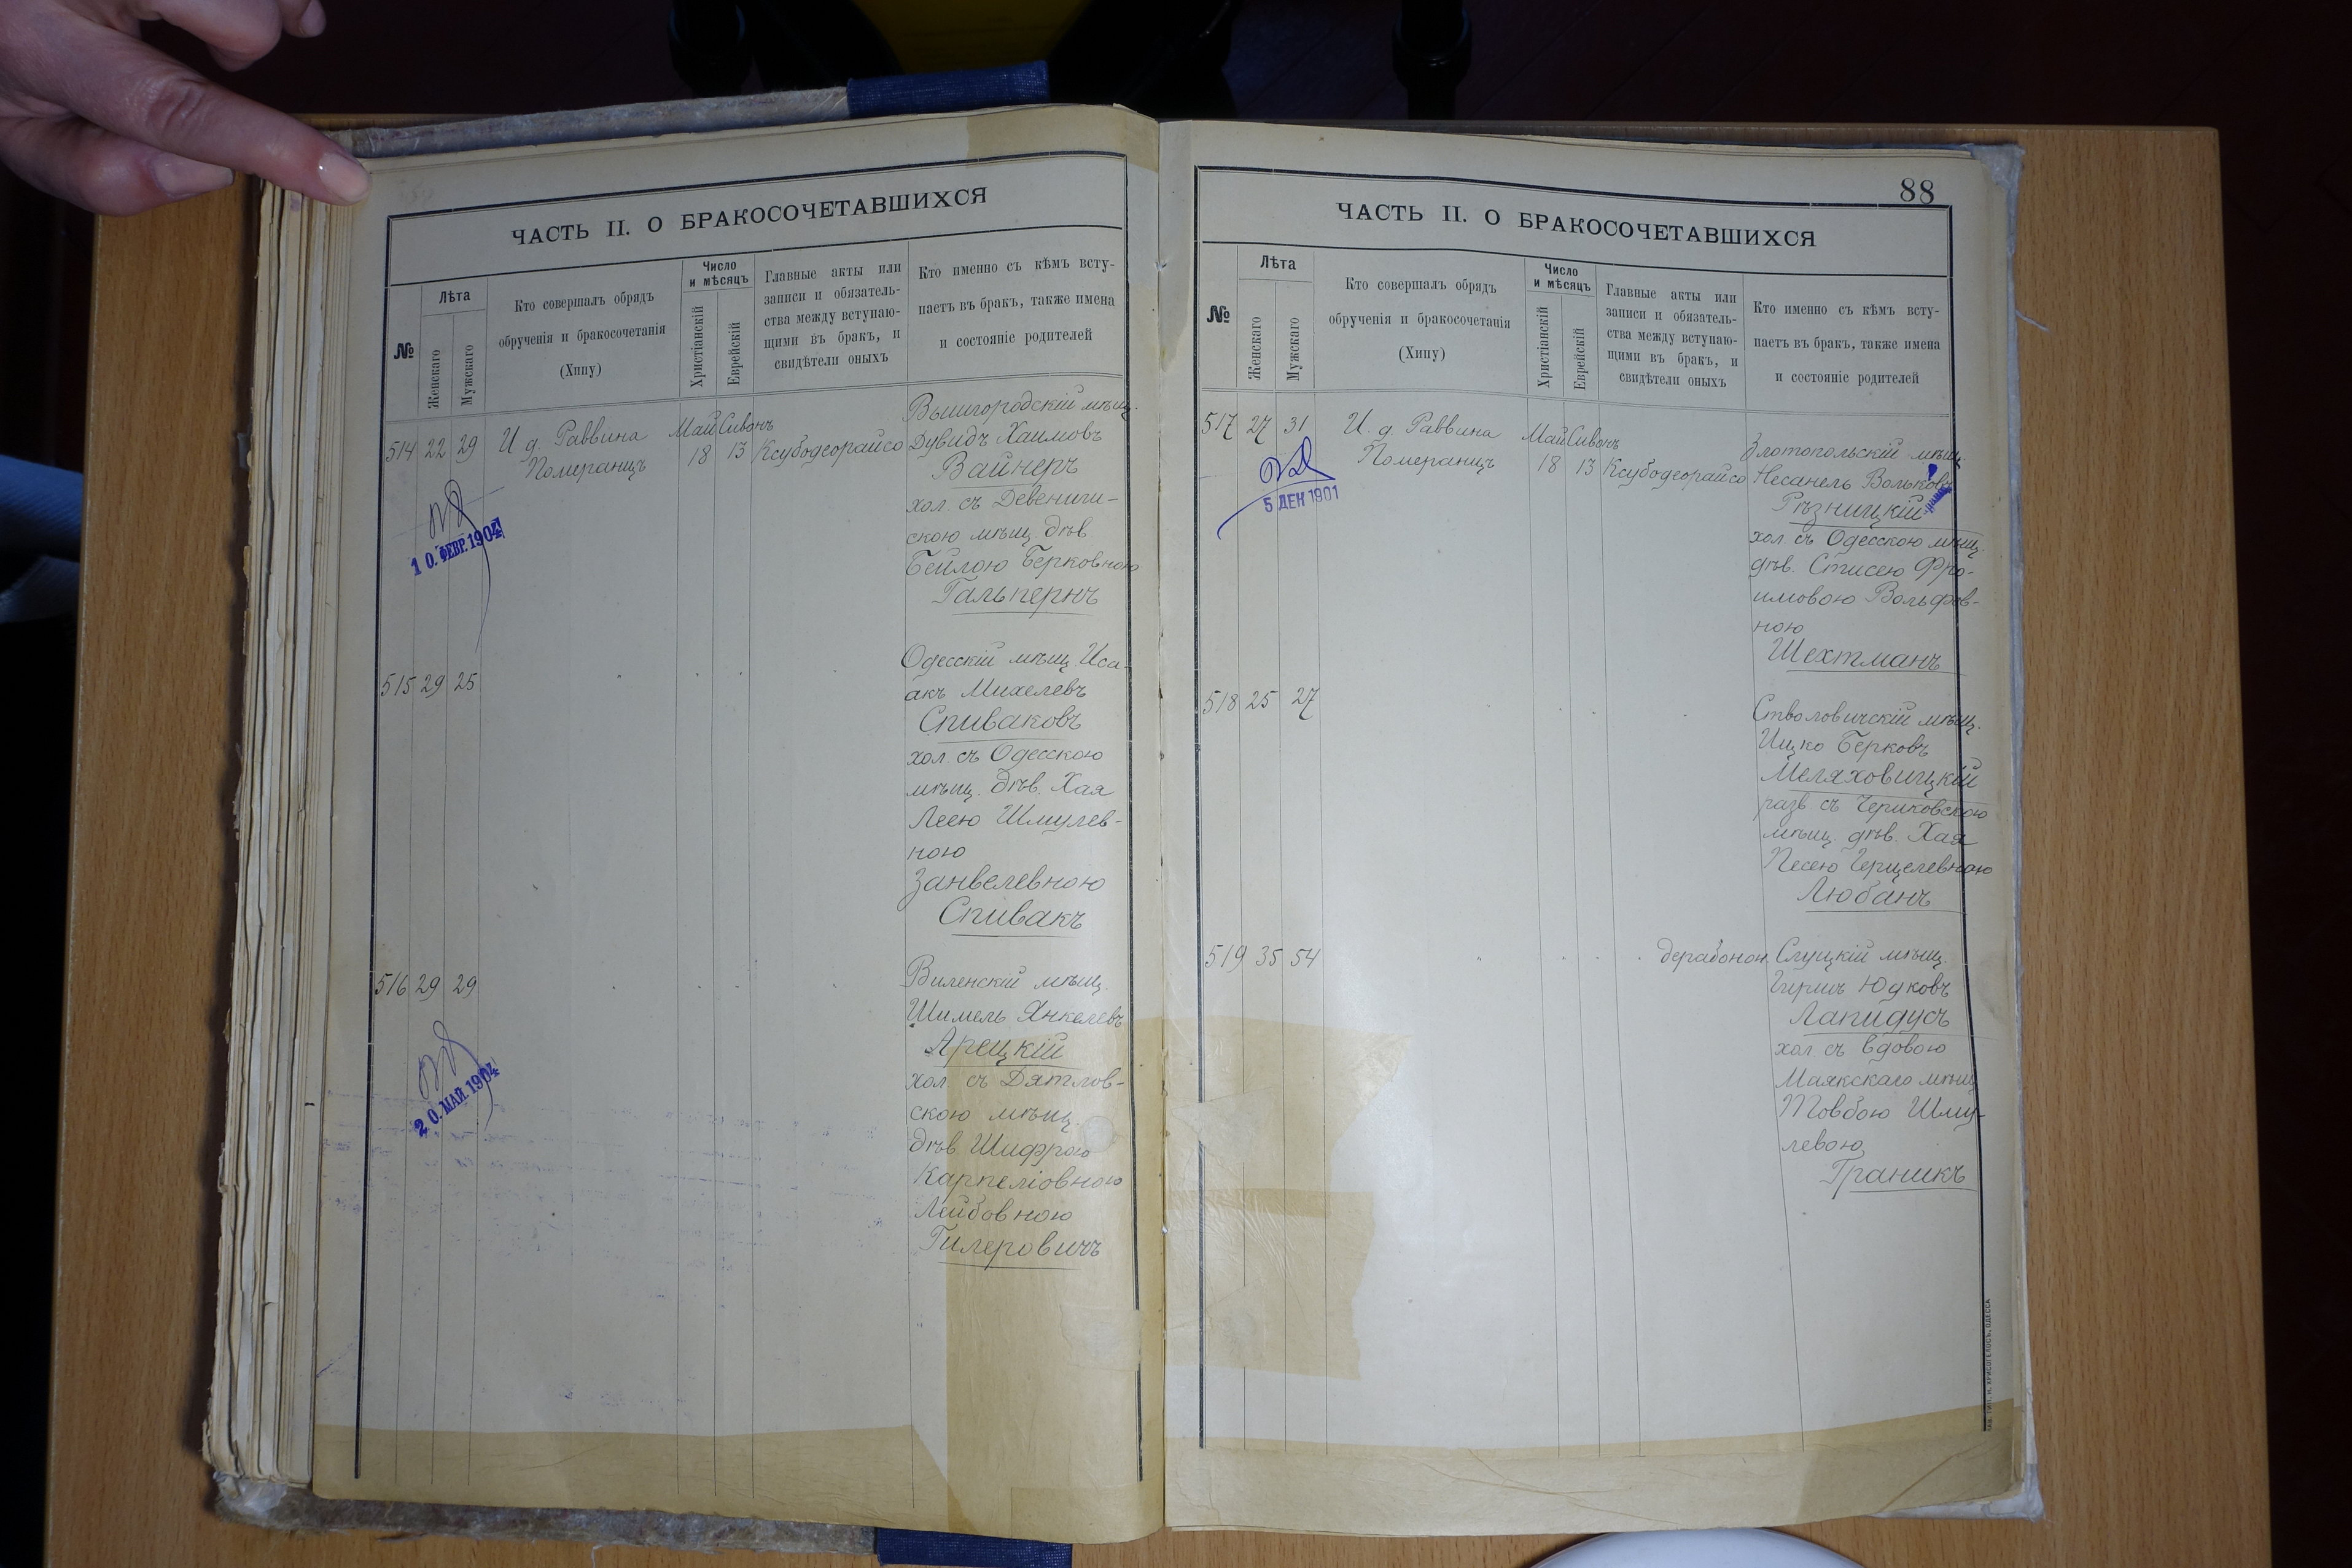 ЧАСТЬ II. О БРАКОСОЧЕТАВШИХСЯ
№
Лѣта
Женскаго
Мужскаго
Кто совершалъ обрядъ
обрученія и бракосочетанія
(Хипу)
Число
и мѣсяцъ
Христіанскій
Еврейскій
Главные акты или
записи и обязатель-
ства между вступаю-
щими въ бракъ, и
свидѣтели оныхъ
Кто именно съ кѣмъ всту-
паетъ въ бракъ, также имена
и состояніе родителей
514 22 29
И д. Раввина
Померанцъ
Май Сивонъ
18 13 Ксубодеорайсо
Вышгородскій мѣщ.
Дувидъ Хаимовъ
Вайнеръ
хол. съ Девениги-
скою мѣщ. дѣв
Бейлою Берковною
Гальпернъ
10. ФЕВР. 1904
515 29 25
Одесскій мѣщ. Иса-
акъ Михелевъ
Спиваковъ
хол. съ Одесскою
мѣщ. дѣв. Хая
Леею Шмулев-
ною
Занвелевною
Спивакъ
516 29 29
Виленскій мѣщ.
Шимель Янкелевъ
Арецкій
хол. съ Дятлов-
скою мѣщ.
дѣв. Шифрою
Карпеліовною
Лейбовною
Гилеровичъ
20. МАЙ. 1904
88
ЧАСТЬ II. О БРАКОСОЧЕТАВШИХСЯ
№
Лѣта
Женскаго
Мужскаго
Кто совершалъ обрядъ
обрученія и бракосочетанія
(Хипу)
Число
и мѣсяцъ
Христіанскій
Еврейскій
Главные акты или
записи и обязатель-
ства между вступаю-
щими въ бракъ, и
свидѣтели оныхъ
Кто именно съ кѣмъ всту-
паетъ въ бракъ, также имена
и состояніе родителей
517 27 31
И. д. Раввина
Померанцъ
Май Сивонъ
18 13 Ксубодеорайсо
Златопольскій мѣщ.
Несанель Вольковъ
Рѣзницкій
хол съ Одесскою мѣщ.
дѣв. Стисею Фро-
имовою Вольфов-
ною
Шехтманъ
5 ДЕК 1901
518 25 27
Стволовичскій мѣщ.
Ицко Берковъ
Меляховицкій
разв съ Чериковскою
мѣщ. дѣв. Хая
Песею Герцелевною
Любанъ
519 35 54
дерабонон
Слуцкій мѣщ.
Гиршъ Юдковъ
Лапидусъ
хол. съ вдовою
Маякскаго мѣщ
Товбою Шму-
левою
Граникъ